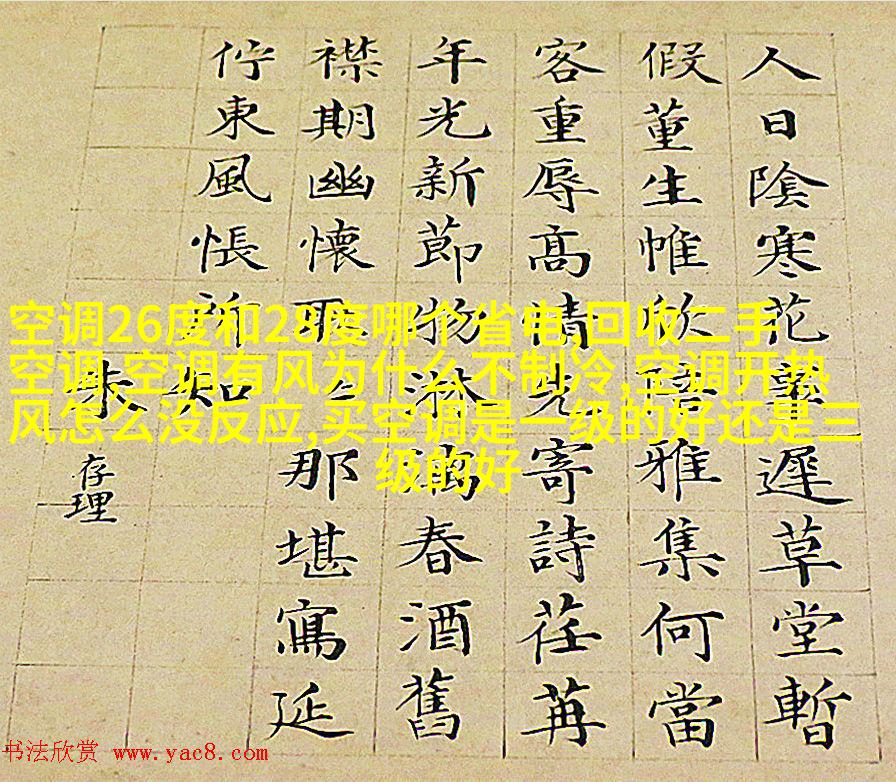 人日陰寒花遲草堂暫
假董生帷欣陪雅集何當
客重辱高情先寄詩荏苒
年光新節物淋漓春酒舊
襟期幽懷那堪寫延
佇東風悵所知
朱存理
空调26度和28度哪个省电,回收二手
空调,空调有风为什么不制冷,空调开热
风怎么没反应,买空调是一级的好还是三
级的好
书法欣赏 www.yac8.com